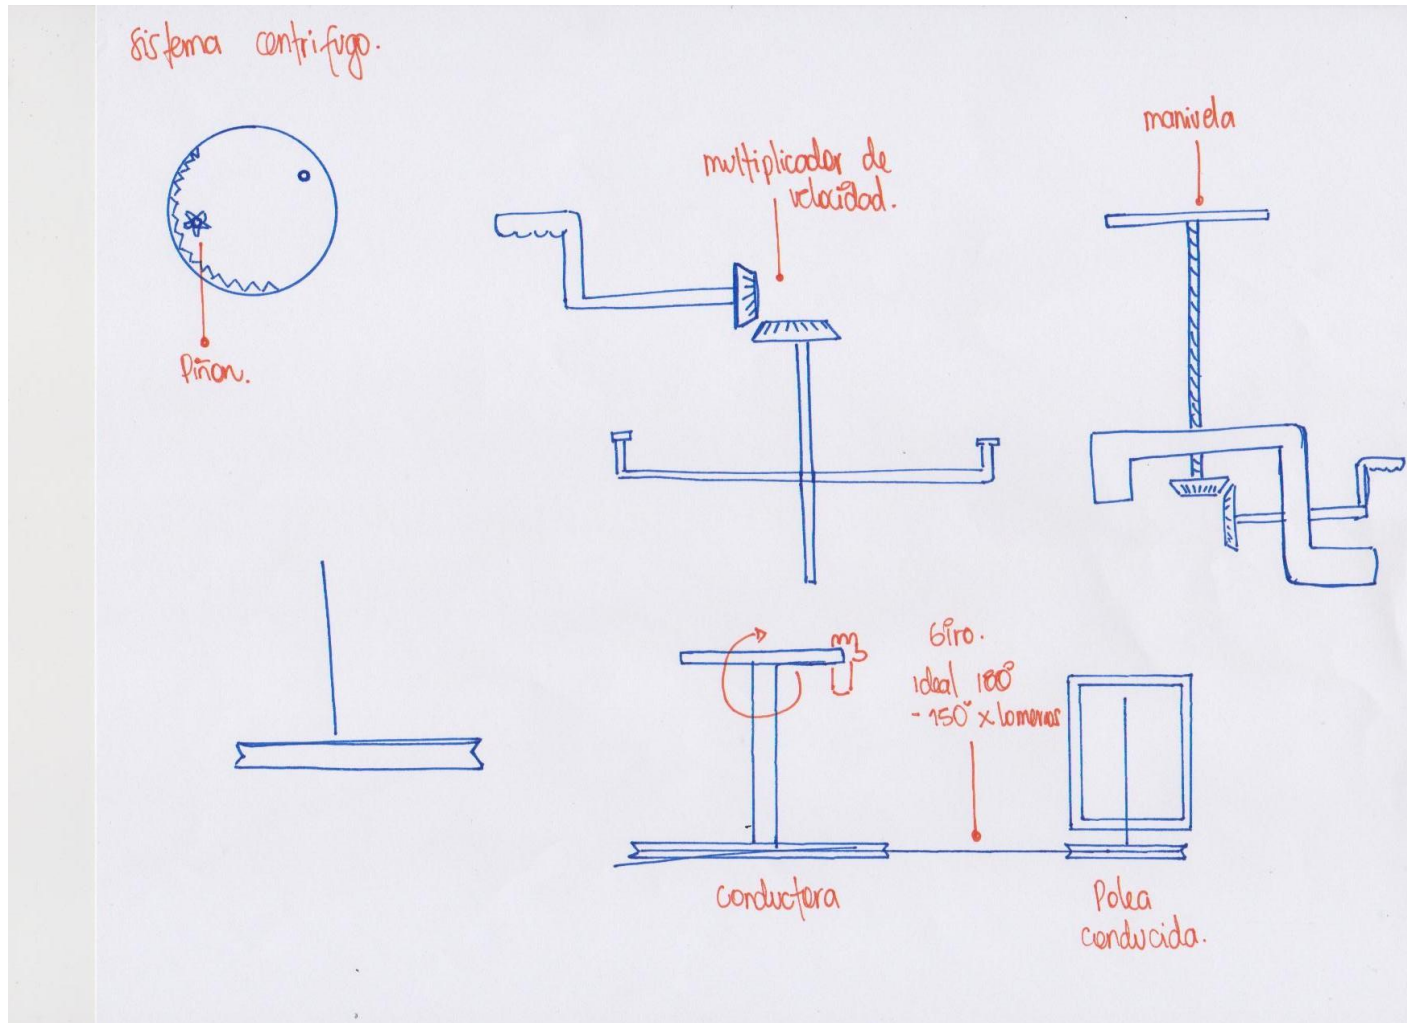 sistema centrifugo.
manivela
multiplicador de
velocidad.
Piñon.
Giro.
ideal 180°
- 150° x lo menos
conductora
Polea
conducida.